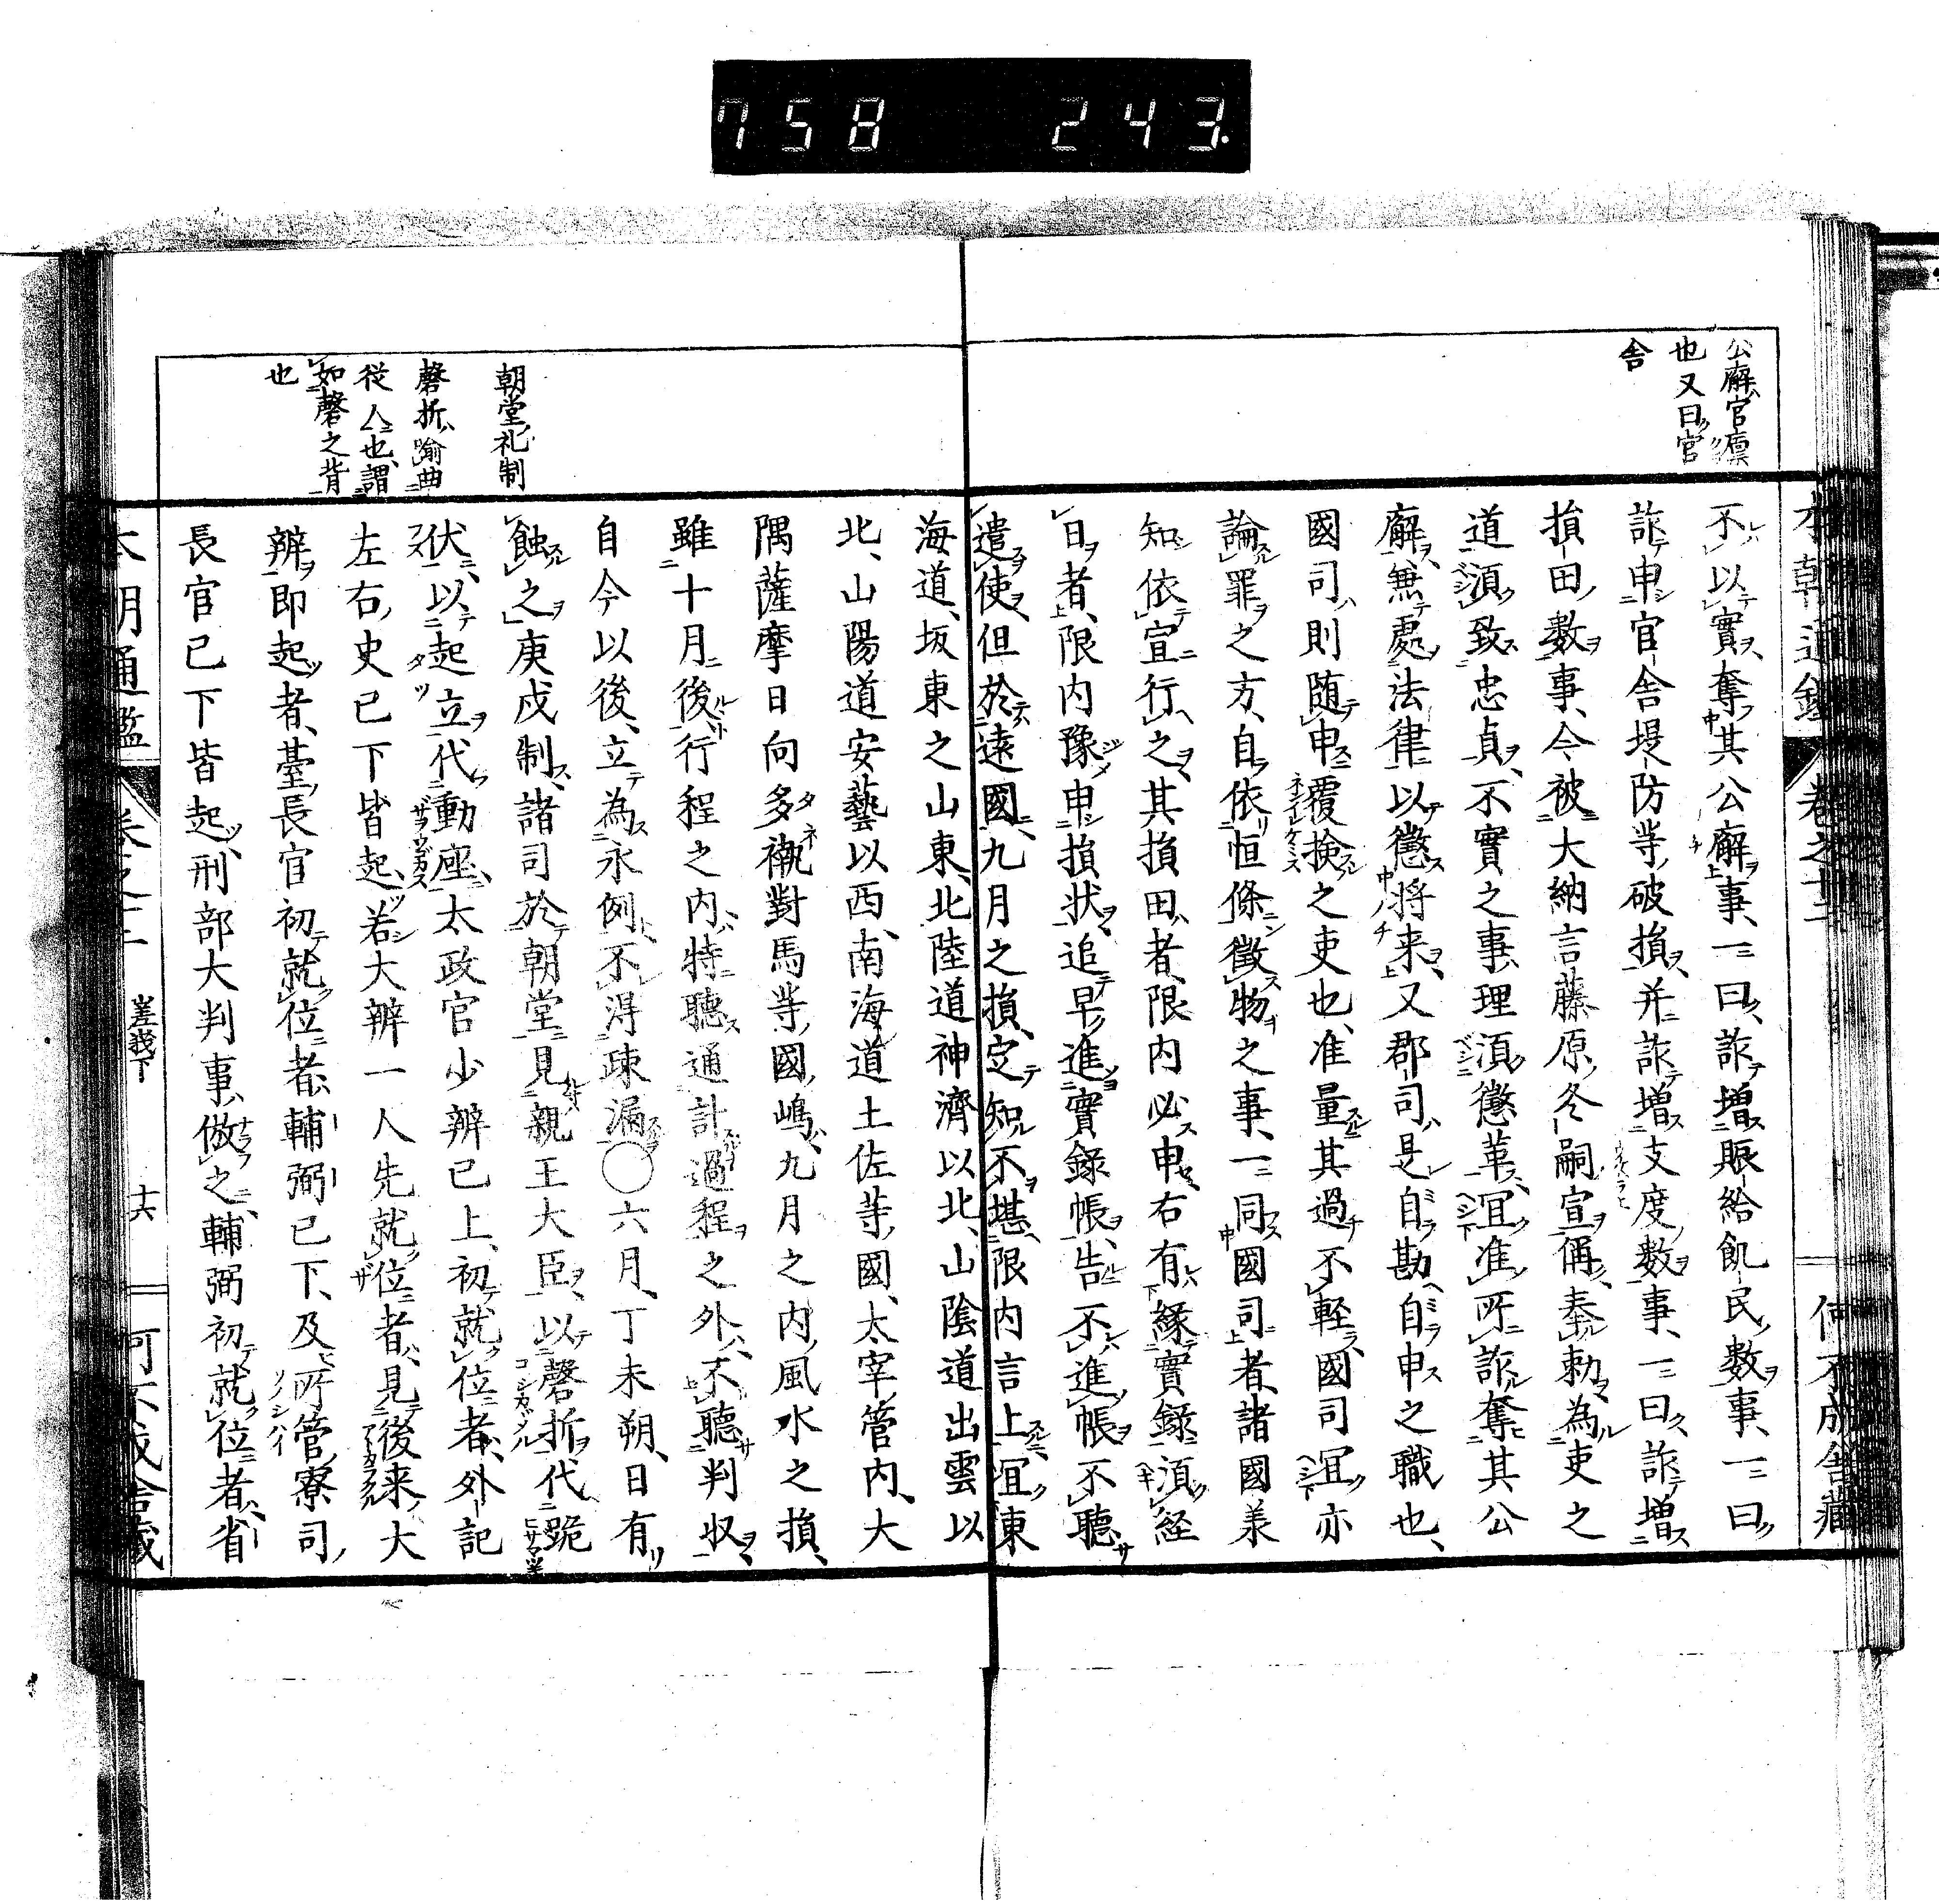 758 243
公廨官廩
也又曰官
舎
不以實奪其公廨事、一曰、詐増賑給飢民數事、一曰
詐申官舎堤防等破損、并詐増支度數事、一曰、詐増
損田數事、今被大納言藤原冬嗣宣偁、奉勅、為吏之
道、須致忠貞、不實之事、理須懲革、宜准所詐奪其公
廨、兼處法律、以懲将来、又郡司是自勘自申之職也、
國司則随申覆検之吏也、准量其過不軽、國司宜亦
論罪之方、自依恒條、徴物之事、一同國司者、諸國承
知、依宣行之、其損田者、限内必申、右有縁實録、須経
日者、限内豫申損状、追早進實録帳、告不進帳、不聴
遣使、但於遠國、九月之損、定知不堪限内言上、宜東
海道、坂東之山東、北陸道神濟以北、山陰道出雲以
北、山陽道安藝以西、南海道土佐等國、太宰管内、大
隅薩摩日向多褹對馬等國嶋、九月之内、風水之損、
雖十月後、行程之内、特聴通計、過程之外、不聴判収、
自今以後、立為永例、不得疎漏〇六月、丁未朔、日有
蝕之、庚戌制、諸司於朝堂見親王大臣、以磬折代跪
伏、以起立代動座、太政官少辨已上、初就位者、外記
左右史已下皆起、若大辨一人先就位者、見後来大
辨即起者、臺長官初就位者、輔弼已下、及所管寮司、
長官已下皆起、刑部大判事、倣之、輔弼初就位者、省
朝堂礼制
磬折、喩曲
從人也、謂
如磬之背
也
本朝通鑑
巻之十二
嵯峨下
十六